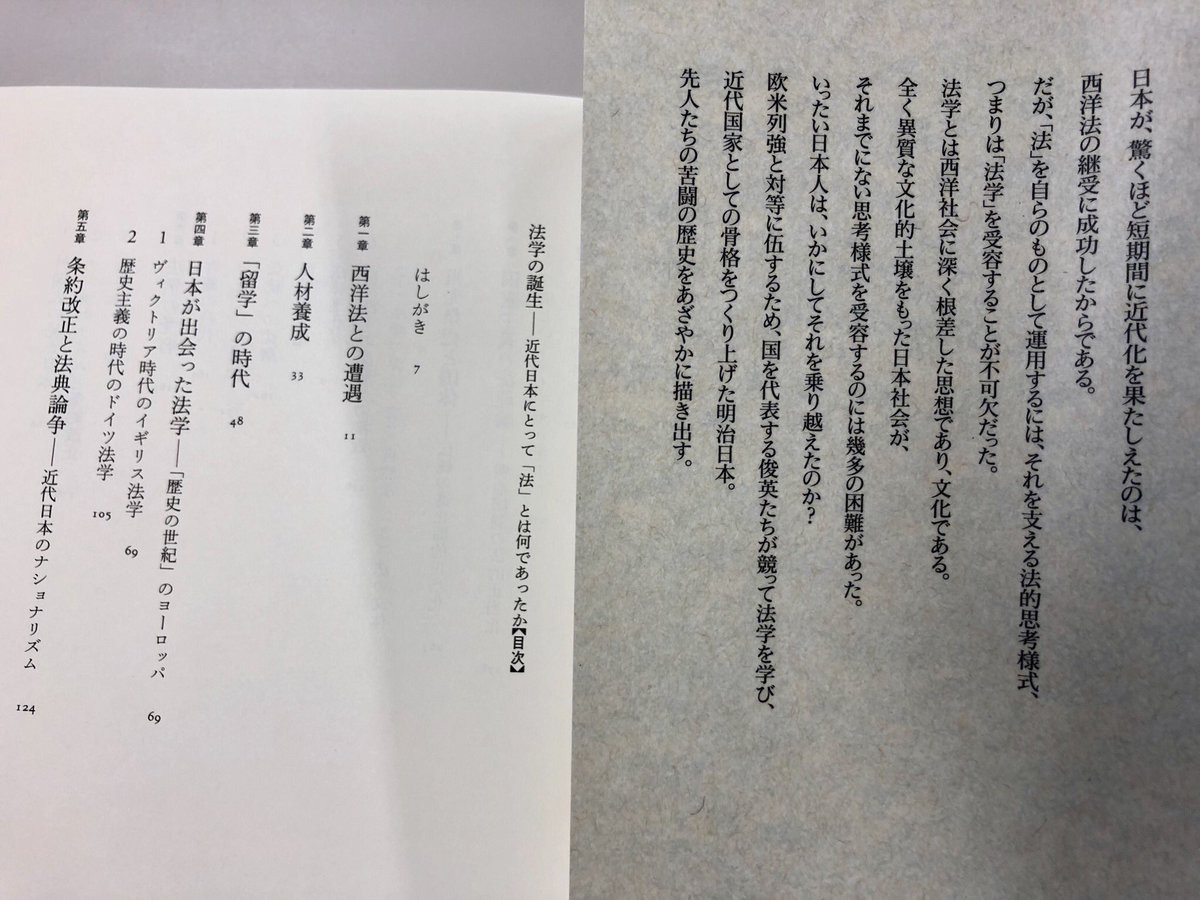 日本が、驚くほど短期間に近代化を果たしえたのは、
西洋法の継受に成功したからである。
だが、「法」を自らのものとして運用するには、それを支える法的思考様式、
つまりは「法学」を受容することが不可欠だった。
法学とは西洋社会に深く根差した思想であり、文化である。
全く異質な文化的土壌をもった日本社会が、
それまでにない思考様式を受容するのには幾多の困難があった。
いったい日本人は、いかにしてそれを乗り越えたのか?
欧米列強と対等に伍するため、国を代表する俊英たちが競って法学を学び、
近代国家としての骨格をつくり上げた明治日本。
先人たちの苦闘の歴史をあざやかに描き出す。
法学の誕生――近代日本にとって「法」とは何であったか【目次】
はしがき 7
第一章 西洋法との遭遇 11
第二章 人材養成 33
第三章 「留学」の時代 48
第四章 日本が出会った法学――「歴史の世紀」のヨーロッパ 69
1 ヴィクトリア時代のイギリス法学 69
2 歴史主義の時代のドイツ法学 105
第五章 条約改正と法典論争――近代日本のナショナリズム 124